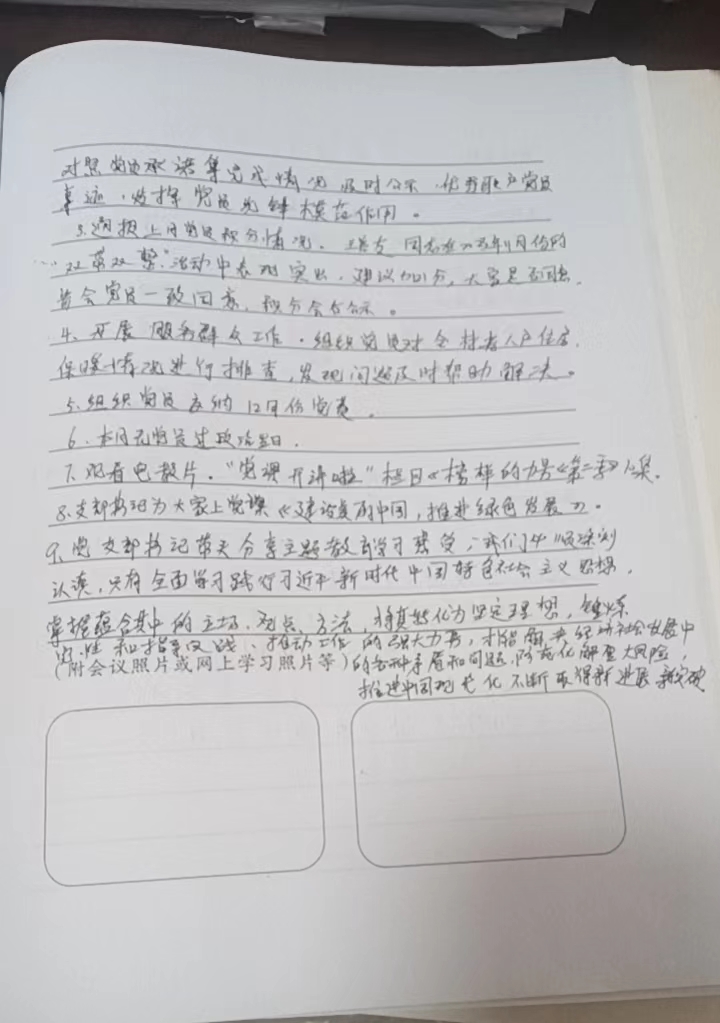 对照党员承诺等完成情况及时公示，优秀党员
事迹，发挥党员先锋模范作用。
3.通报上月党员积分情况。同志在月份的
"双带双整"活动中表现突出，建议加1分，大家是否同意，
皆会党员一致同意，积分会后公示。
4、开展服务群众工作。组织党员对全村老人户住房、
保暖情况进行排查，发现问题及时帮助解决。
5.组织党员交纳12月份党费。
6、本月无党员过政治生日。
7、观看电教片。"党课开讲啦"栏目《榜样的力量《第二季》集。
8.支部书记为大家上党课《建设美丽中国，推进绿色发展》。
9、党支部书记带头分享主题教育学习感受，我们要深刻
认识，只有全面学习践行习近平新时代中国特色社会主义思想，
掌握蕴含其中的立场、观点、方法，将其转化为坚定理想，锤炼
党性和指导实践、推动工作的强大力量，才能解决经济社会发展中
(附会议照片或网上学习照片等)的各种矛盾和问题，防范化解重大风险，
推进中国现代化不断取得新进展新突破